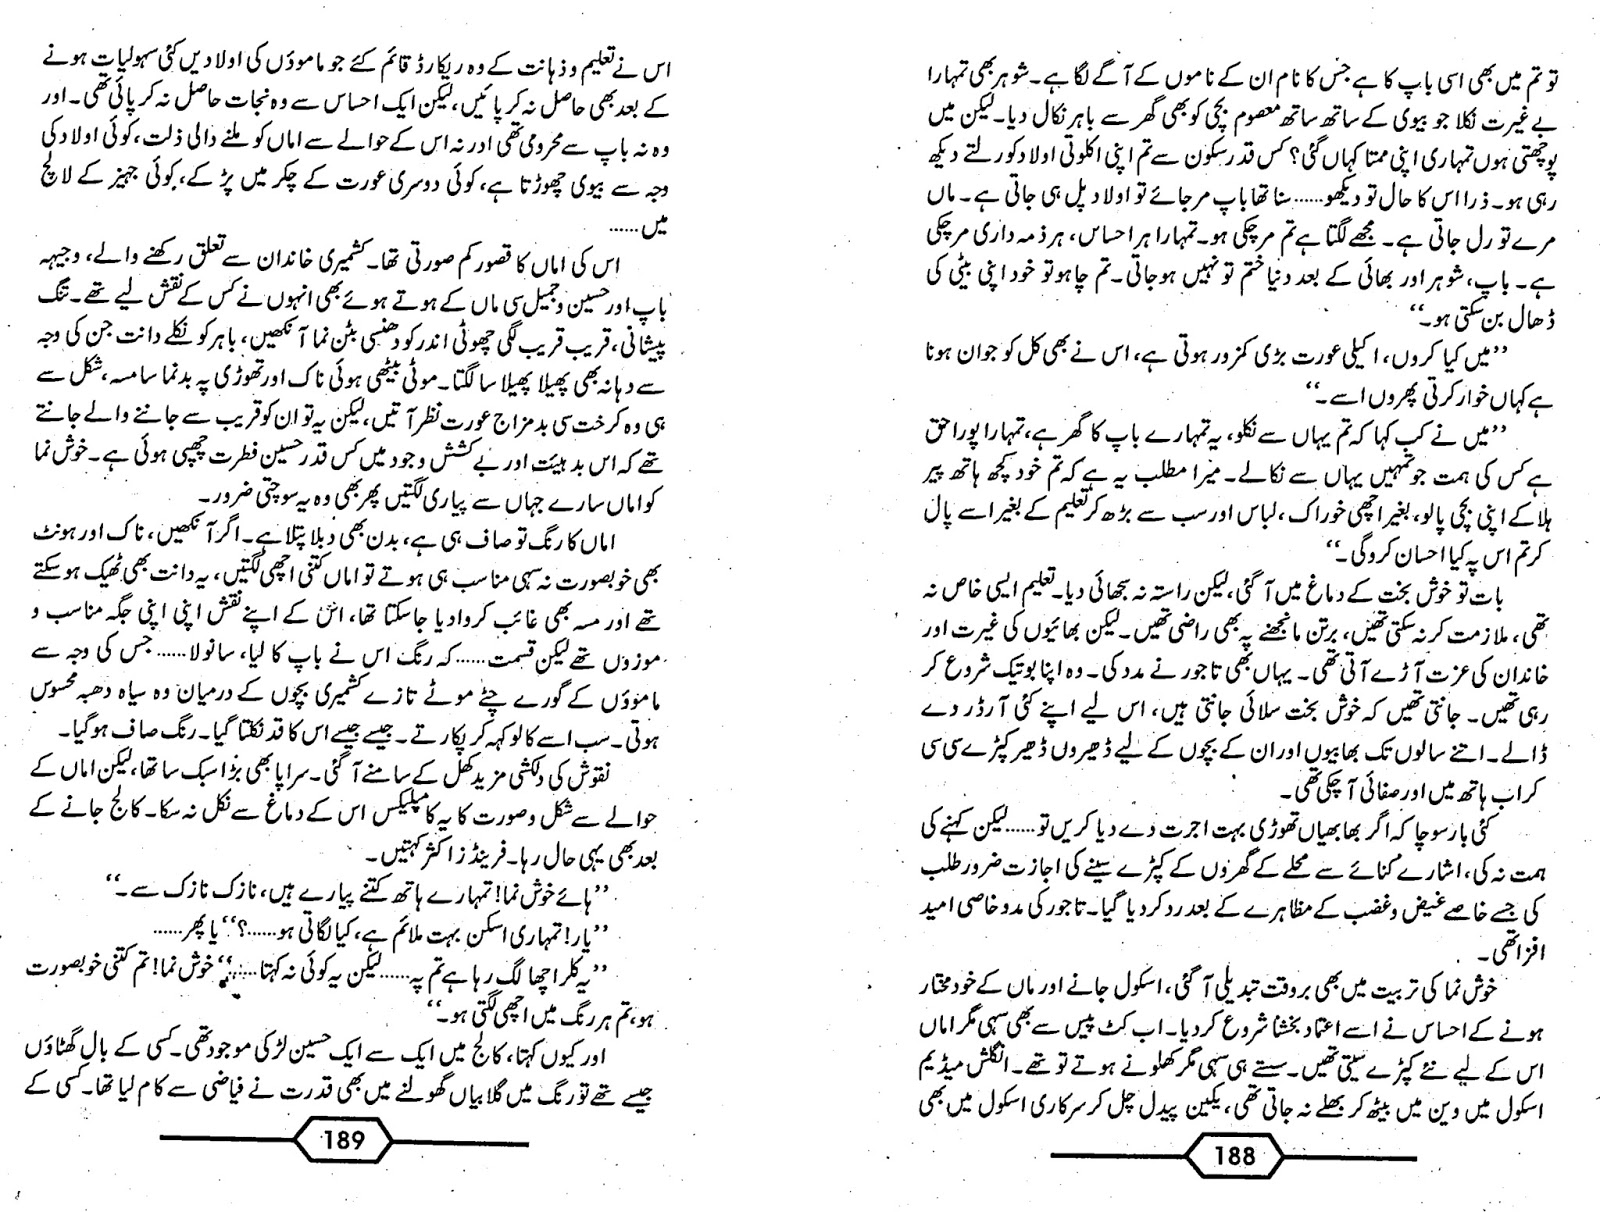 تو تم میں بھی اسی باپ کا ہے جس کا نام ان کے ناموں کے آگے لگا ہے۔ شوہر بھی تمہارا
بے غیرت نکلا جو بیوی کے ساتھ ساتھ معصوم بچی کو بھی گھر سے باہر نکال دیا۔ لیکن میں
پوچھتی ہوں تمہاری اپنی ممتا کہاں گئی؟ کس قدر سکون سے تم اپنی اکلوتی اولاد کو رلتے دیکھ
رہی ہو۔ ذرا اس کا حال تو دیکھو...... سنا تھا باپ مر جائے تو اولاد پل ہی جاتی ہے۔ ماں
مرے تو رل جاتی ہے۔ مجھے لگتا ہے تم مر چکی ہو۔ تمہارا ہر احساس، ہر ذمہ داری مر چکی
ہے۔ باپ، شوہر اور بھائی کے بعد دنیا ختم تو نہیں ہو جاتی۔ تم چاہو تو خود اپنی بیٹی کی
ڈھال بن سکتی ہو۔‘‘
’’میں کیا کروں، اکیلی عورت بڑی کمزور ہوتی ہے، اس نے بھی کل کو جوان ہونا
ہے کہاں خوار کرتی پھروں اسے۔‘‘
’’میں نے کب کہا کہ تم یہاں سے نکلو، یہ تمہارے باپ کا گھر ہے، تمہارا پورا حق
ہے کس کی ہمت جو تمہیں یہاں سے نکالے۔ میرا مطلب یہ ہے کہ تم خود کچھ ہاتھ پیر
ہلا کے اپنی بچی پالو، بغیر اچھی خوراک، لباس اور سب سے بڑھ کر تعلیم کے بغیر اسے پال
کر تم اس پہ کیا احسان کرو گی۔‘‘
بات تو خوش بخت کے دماغ میں آ گئی، لیکن راستہ نہ سجھائی دیا۔ تعلیم ایسی خاص نہ
تھی، ملازمت کر نہ سکتی تھیں، برتن مانجھنے پہ بھی راضی تھیں۔ لیکن بھائیوں کی غیرت اور
خاندان کی عزت آڑے آتی تھی۔ یہاں بھی تاجور نے مدد کی۔ وہ اپنا بوتیک شروع کر
رہی تھیں۔ جانتی تھیں کہ خوش بخت سلائی جانتی ہیں، اس لیے اپنے کئی آرڈر دے
ڈالے۔ اتنے سالوں تک بھابیوں اور ان کے بچوں کے لیے ڈھیروں ڈھیر کپڑے سی سی
کر اب ہاتھ میں اور صفائی آ چکی تھی۔
کئی بار سوچا کہ اگر بھابھیاں تھوڑی بہت اجرت دے دیا کریں تو...... لیکن کہنے کی
ہمت نہ کی، اشارے کنائے سے محلے کے گھروں کے کپڑے سینے کی اجازت ضرور طلب
کی جسے خاصے غیض و غضب کے مظاہرے کے بعد رد کر دیا گیا۔ تاجور کی مدد خاصی امید
افزا تھی۔
خوش نما کی تربیت میں بھی بروقت تبدیلی آ گئی، اسکول جانے اور ماں کے خود مختار
ہونے کے احساس نے اسے اعتماد بخشنا شروع کر دیا۔ اب کٹ پیس سے بھی سہی مگر اماں
اس کے لیے نئے کپڑے سیتی تھیں۔ سستے ہی سہی مگر کھلونے ہوتے تو تھے۔ انگلش میڈیم
اسکول میں وین میں بیٹھ کر بھلے نہ جاتی تھی، لیکن پیدل چل کر سرکاری اسکول میں بھی
188
اس نے تعلیم و ذہانت کے وہ ریکارڈ قائم کئے جو ماموؤں کی اولادیں کئی سہولیات ہونے
کے بعد بھی حاصل نہ کر پائیں، لیکن ایک احساس سے وہ نجات حاصل نہ کر پائی تھی۔ اور
وہ نہ باپ سے محرومی تھی اور نہ اس کے حوالے سے اماں کو ملنے والی ذلت، کوئی اولاد کی
وجہ سے بیوی چھوڑتا ہے، کوئی دوسری عورت کے چکر میں پڑ کے، کوئی جہیز کے لالچ
میں......
اس کی اماں کا قصور کم صورتی تھا۔ کشمیری خاندان سے تعلق رکھنے والے، وجیہہ
باپ اور حسین و جمیل سی ماں کے ہوتے ہوئے بھی انہوں نے کس کے نقش لیے تھے۔ تنگ
پیشانی، قریب قریب لگی چھوٹی اندر کو دھنسی بٹن نما آنکھیں، باہر کو نکلے دانت جن کی وجہ
سے دہانہ بھی پھیلا پھیلا سا لگتا۔ موٹی بیٹھی ہوئی ناک اور تھوڑی پہ بدنما سا مسہ، شکل سے
ہی وہ کرخت سی بد مزاج عورت نظر آتیں، لیکن یہ تو ان کو قریب سے جاننے والے جانتے
تھے کہ اس بد ہیئت اور بے کشش وجود میں کس قدر حسین فطرت چھپی ہوئی ہے۔ خوش نما
کو اماں سارے جہاں سے پیاری لگتیں پھر بھی وہ یہ سوچتی ضرور۔
اماں کا رنگ تو صاف ہی ہے، بدن بھی دبلا پتلا ہے۔ اگر آنکھیں، ناک اور ہونٹ
بھی خوبصورت نہ سہی مناسب ہی ہوتے تو اماں کتنی اچھی لگتیں، یہ دانت بھی ٹھیک ہو سکتے
تھے اور مسہ بھی غائب کروا دیا جا سکتا تھا، اس کے اپنے نقش اپنی اپنی جگہ مناسب و
موزوں تھے لیکن قسمت...... کہ رنگ اس نے باپ کا لیا، سانولا...... جس کی وجہ سے
ماموؤں کے گورے چٹے موٹے تازے کشمیری بچوں کے درمیان وہ سیاہ دھبہ محسوس
ہوتی۔ سب اسے کالو کہہ کر پکارتے۔ جیسے جیسے اس کا قد نکلتا گیا۔ رنگ صاف ہو گیا۔
نقوش کی دلکشی مزید کھل کے سامنے آ گئی۔ سراپا بھی بڑا سبک سا تھا، لیکن اماں کے
حوالے سے شکل و صورت کا یہ کامپلیکس اس کے دماغ سے نکل نہ سکا۔ کالج جانے کے
بعد بھی یہی حال رہا۔ فرینڈز اکثر کہتیں۔
’’ہائے خوش نما! تمہارے ہاتھ کتنے پیارے ہیں، نازک نازک سے۔‘‘
’’یار! تمہاری اسکن بہت ملائم ہے، کیا لگاتی ہو......؟‘‘ یا پھر......
’’یہ کلر اچھا لگ رہا ہے تم پہ...... لیکن یہ کوئی نہ کہتا......‘‘ خوش نما! تم کتنی خوبصورت
ہو، تم ہر رنگ میں اچھی لگتی ہو۔‘‘
اور کیوں کہتا، کالج میں ایک سے ایک حسین لڑکی موجود تھی۔ کسی کے بال گھٹاؤں
جیسے تھے تو رنگ میں گلابیاں گھولنے میں بھی قدرت نے فیاضی سے کام لیا تھا۔ کسی کے
189